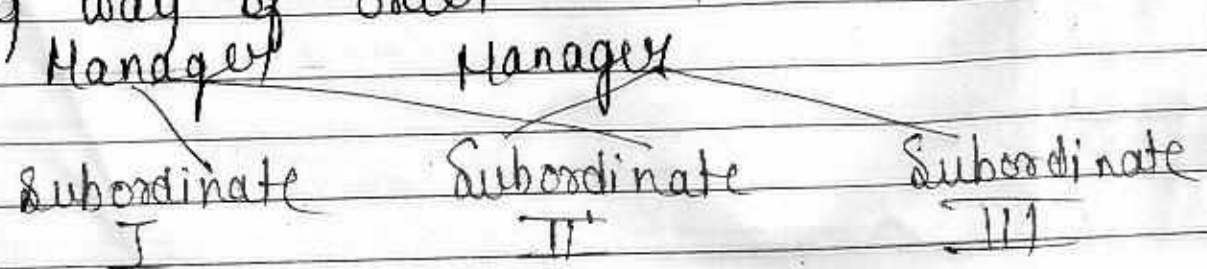 way of order
Manager Manager
Subordinate Subordinate Subordinate
I II III